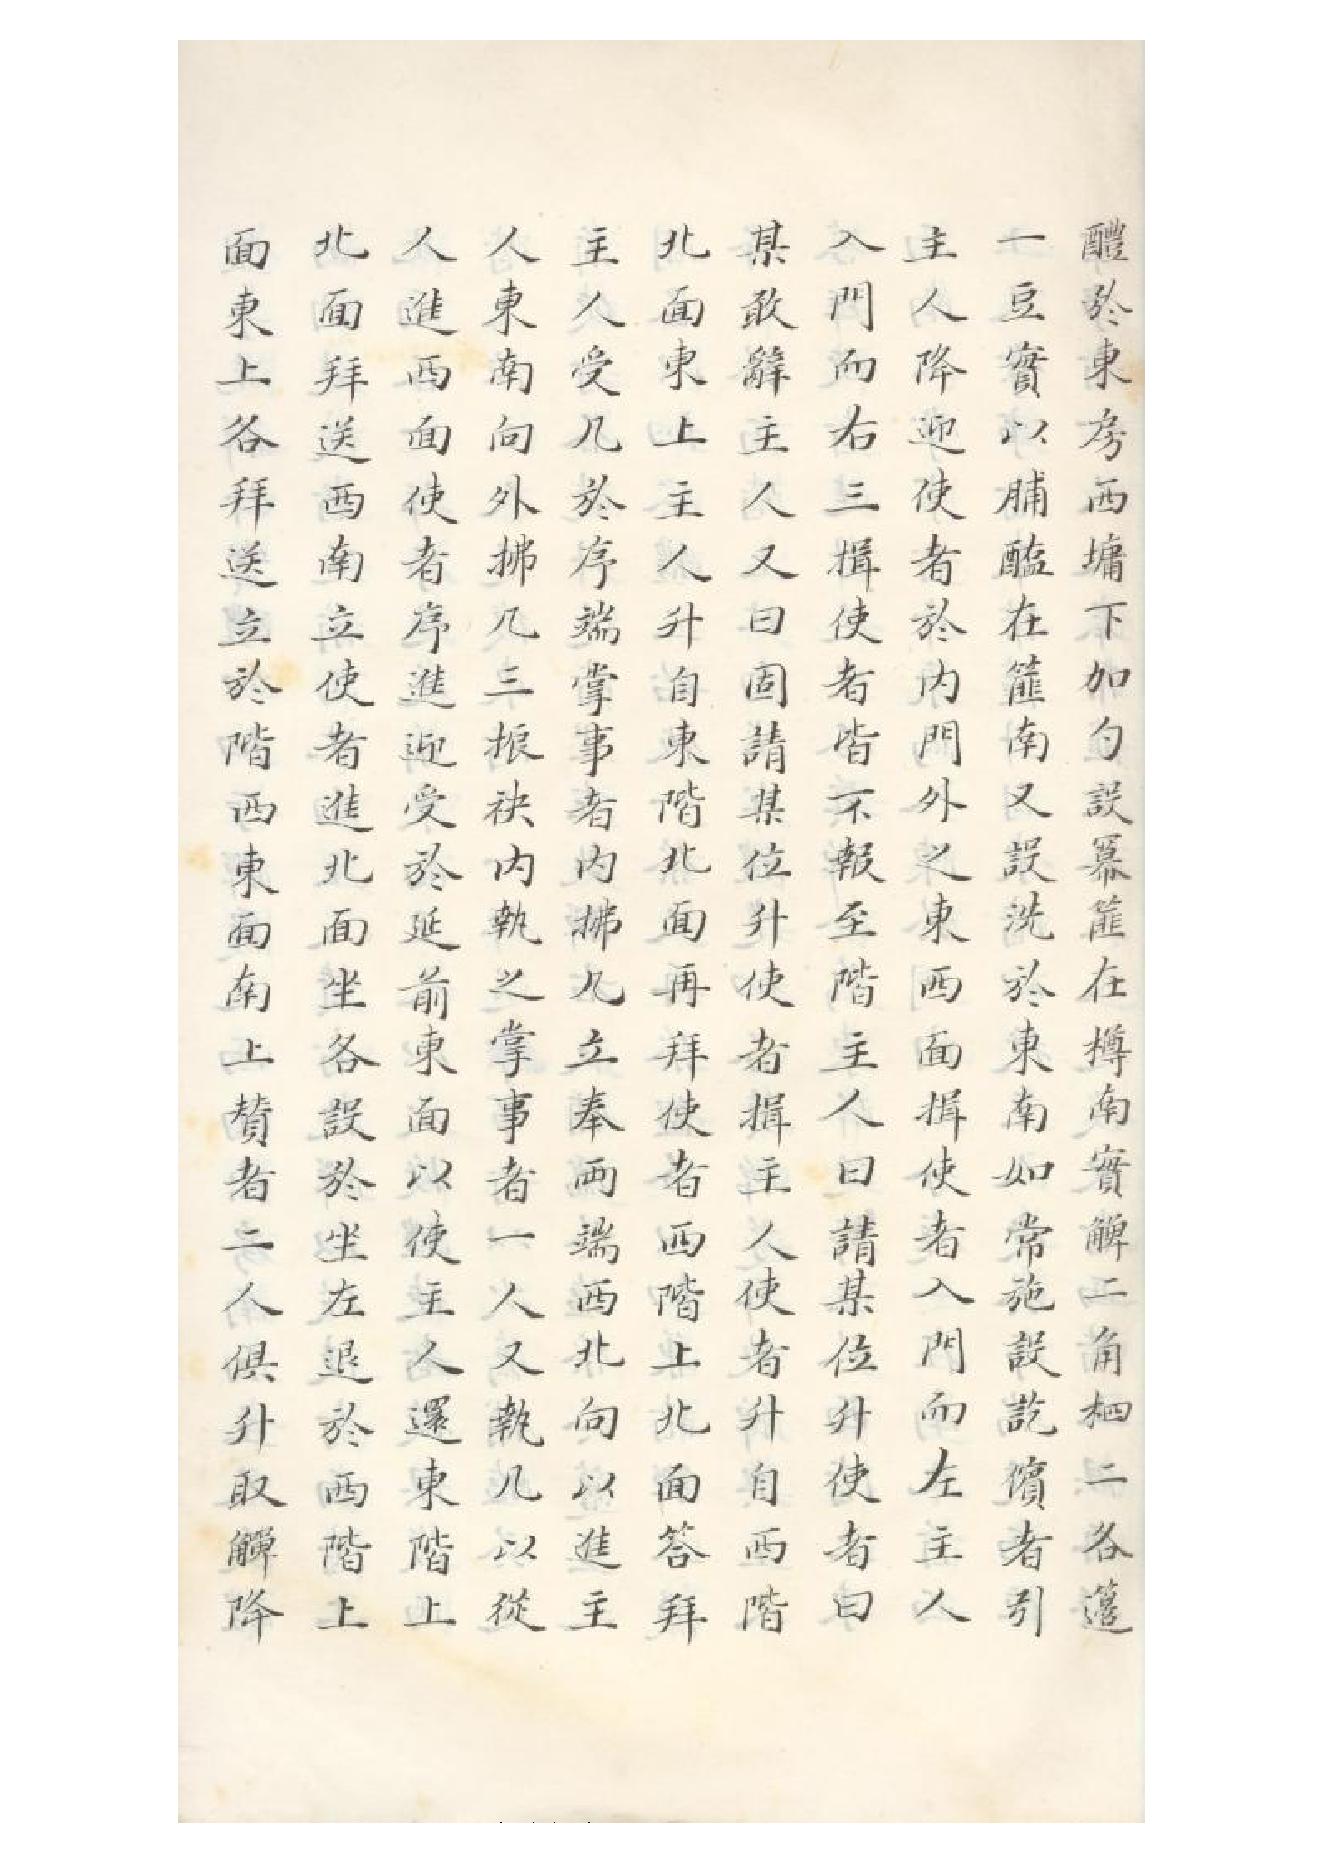 醴於東房西墉下加勺設冪篚在樽南實觶二角柶二各籩
一豆實以脯醢在篚南又設洗於東南如常施設訖儐者引
主人降迎使者於內門外之東西面揖使者入門而左主人
入門而右三揖使者皆不報至階主人曰請某位升使者曰
某敢辭主人又曰固請某位升使者揖主人使者升自西階
北面東上主人升自東階北面再拜使者西階上北面答拜
主人受几於序端掌事者內拂几立奉兩端西北向以進主
人東南向外拂几三振袂內執之掌事者一人又執几以從
人進西面使者序進迎受於延前東面以使主人還東階上
北面拜送西南立使者進北面坐各設於坐左退於西階上
面東上各拜送立於階西東面南上贊者二人俱升取觶降